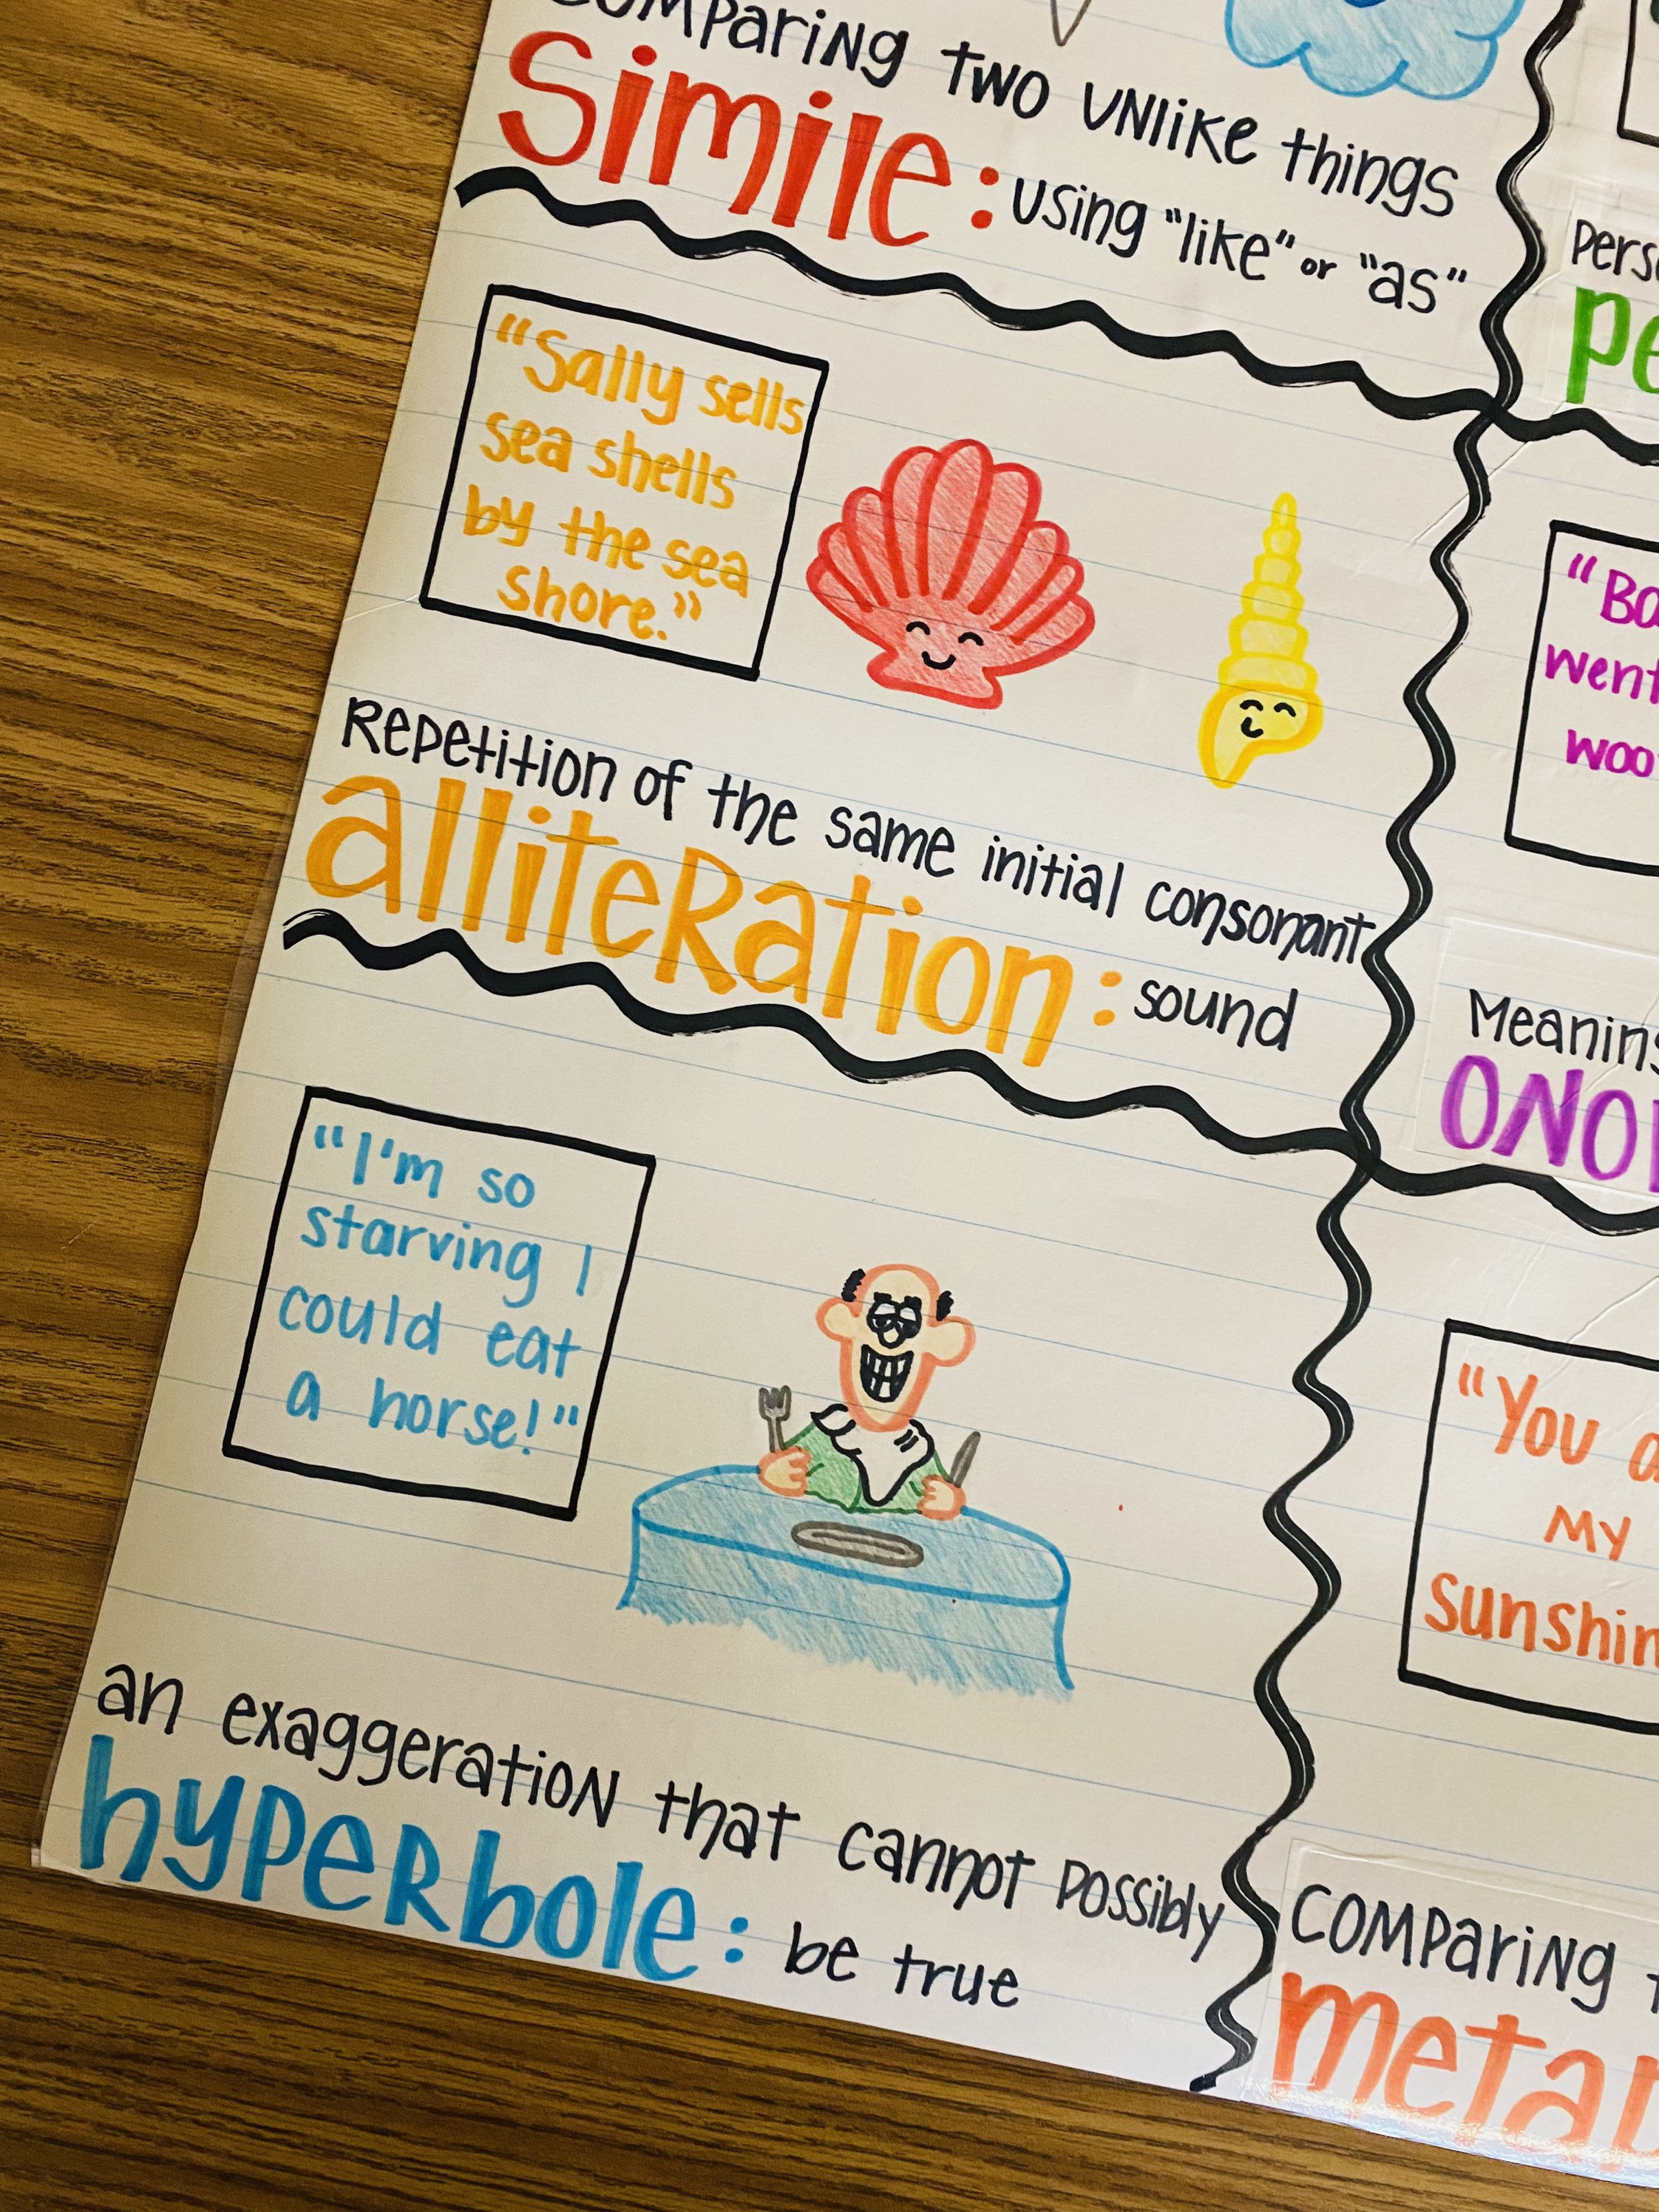 Comparing two unlike things
simile: using "like" or "as"
"Sally sells
sea shells
by the sea
shore."
Repetition of the same initial consonant
alliteration: sound
"I'm so
starving I
could eat
a horse!"
an exaggeration that cannot possibly
hyperbole: be true
"You
my
Comparing